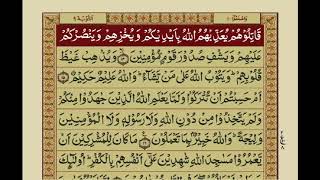 قَاتِلُوْهُمْ يُعَذِّبْهُمُ اللّٰهُ بِاَيْدِيْكُمْ وَيُخْزِهِمْ وَيَنْصُرْكُمْ
عَلَيْهِمْ وَيَشْفِ صُدُوْرَ قَوْمٍ مُّؤْمِنِيْنَ ۝ وَيُذْهِبْ غَيْظَ
قُلُوْبِهِمْ ؕ وَيَتُوْبُ اللّٰهُ عَلٰى مَنْ يَّشَآءُ ؕ وَاللّٰهُ عَلِيْمٌ حَكِيْمٌ ۝
اَمْ حَسِبْتُمْ اَنْ تُتْرَكُوْا وَلَمَّا يَعْلَمِ اللّٰهُ الَّذِيْنَ جٰهَدُوْا مِنْكُمْ
وَلَمْ يَتَّخِذُوْا مِنْ دُوْنِ اللّٰهِ وَلَا رَسُوْلِهٖ وَلَا الْمُؤْمِنِيْنَ
وَلِيْجَةً ؕ وَاللّٰهُ خَبِيْرٌۢ بِمَا تَعْمَلُوْنَ ۝ مَا كَانَ لِلْمُشْرِكِيْنَ اَنْ
يَّعْمُرُوْا مَسٰجِدَ اللّٰهِ شٰهِدِيْنَ عَلٰٓى اَنْفُسِهِمْ بِالْكُفْرِ ؕ اُولٰٓئِكَ